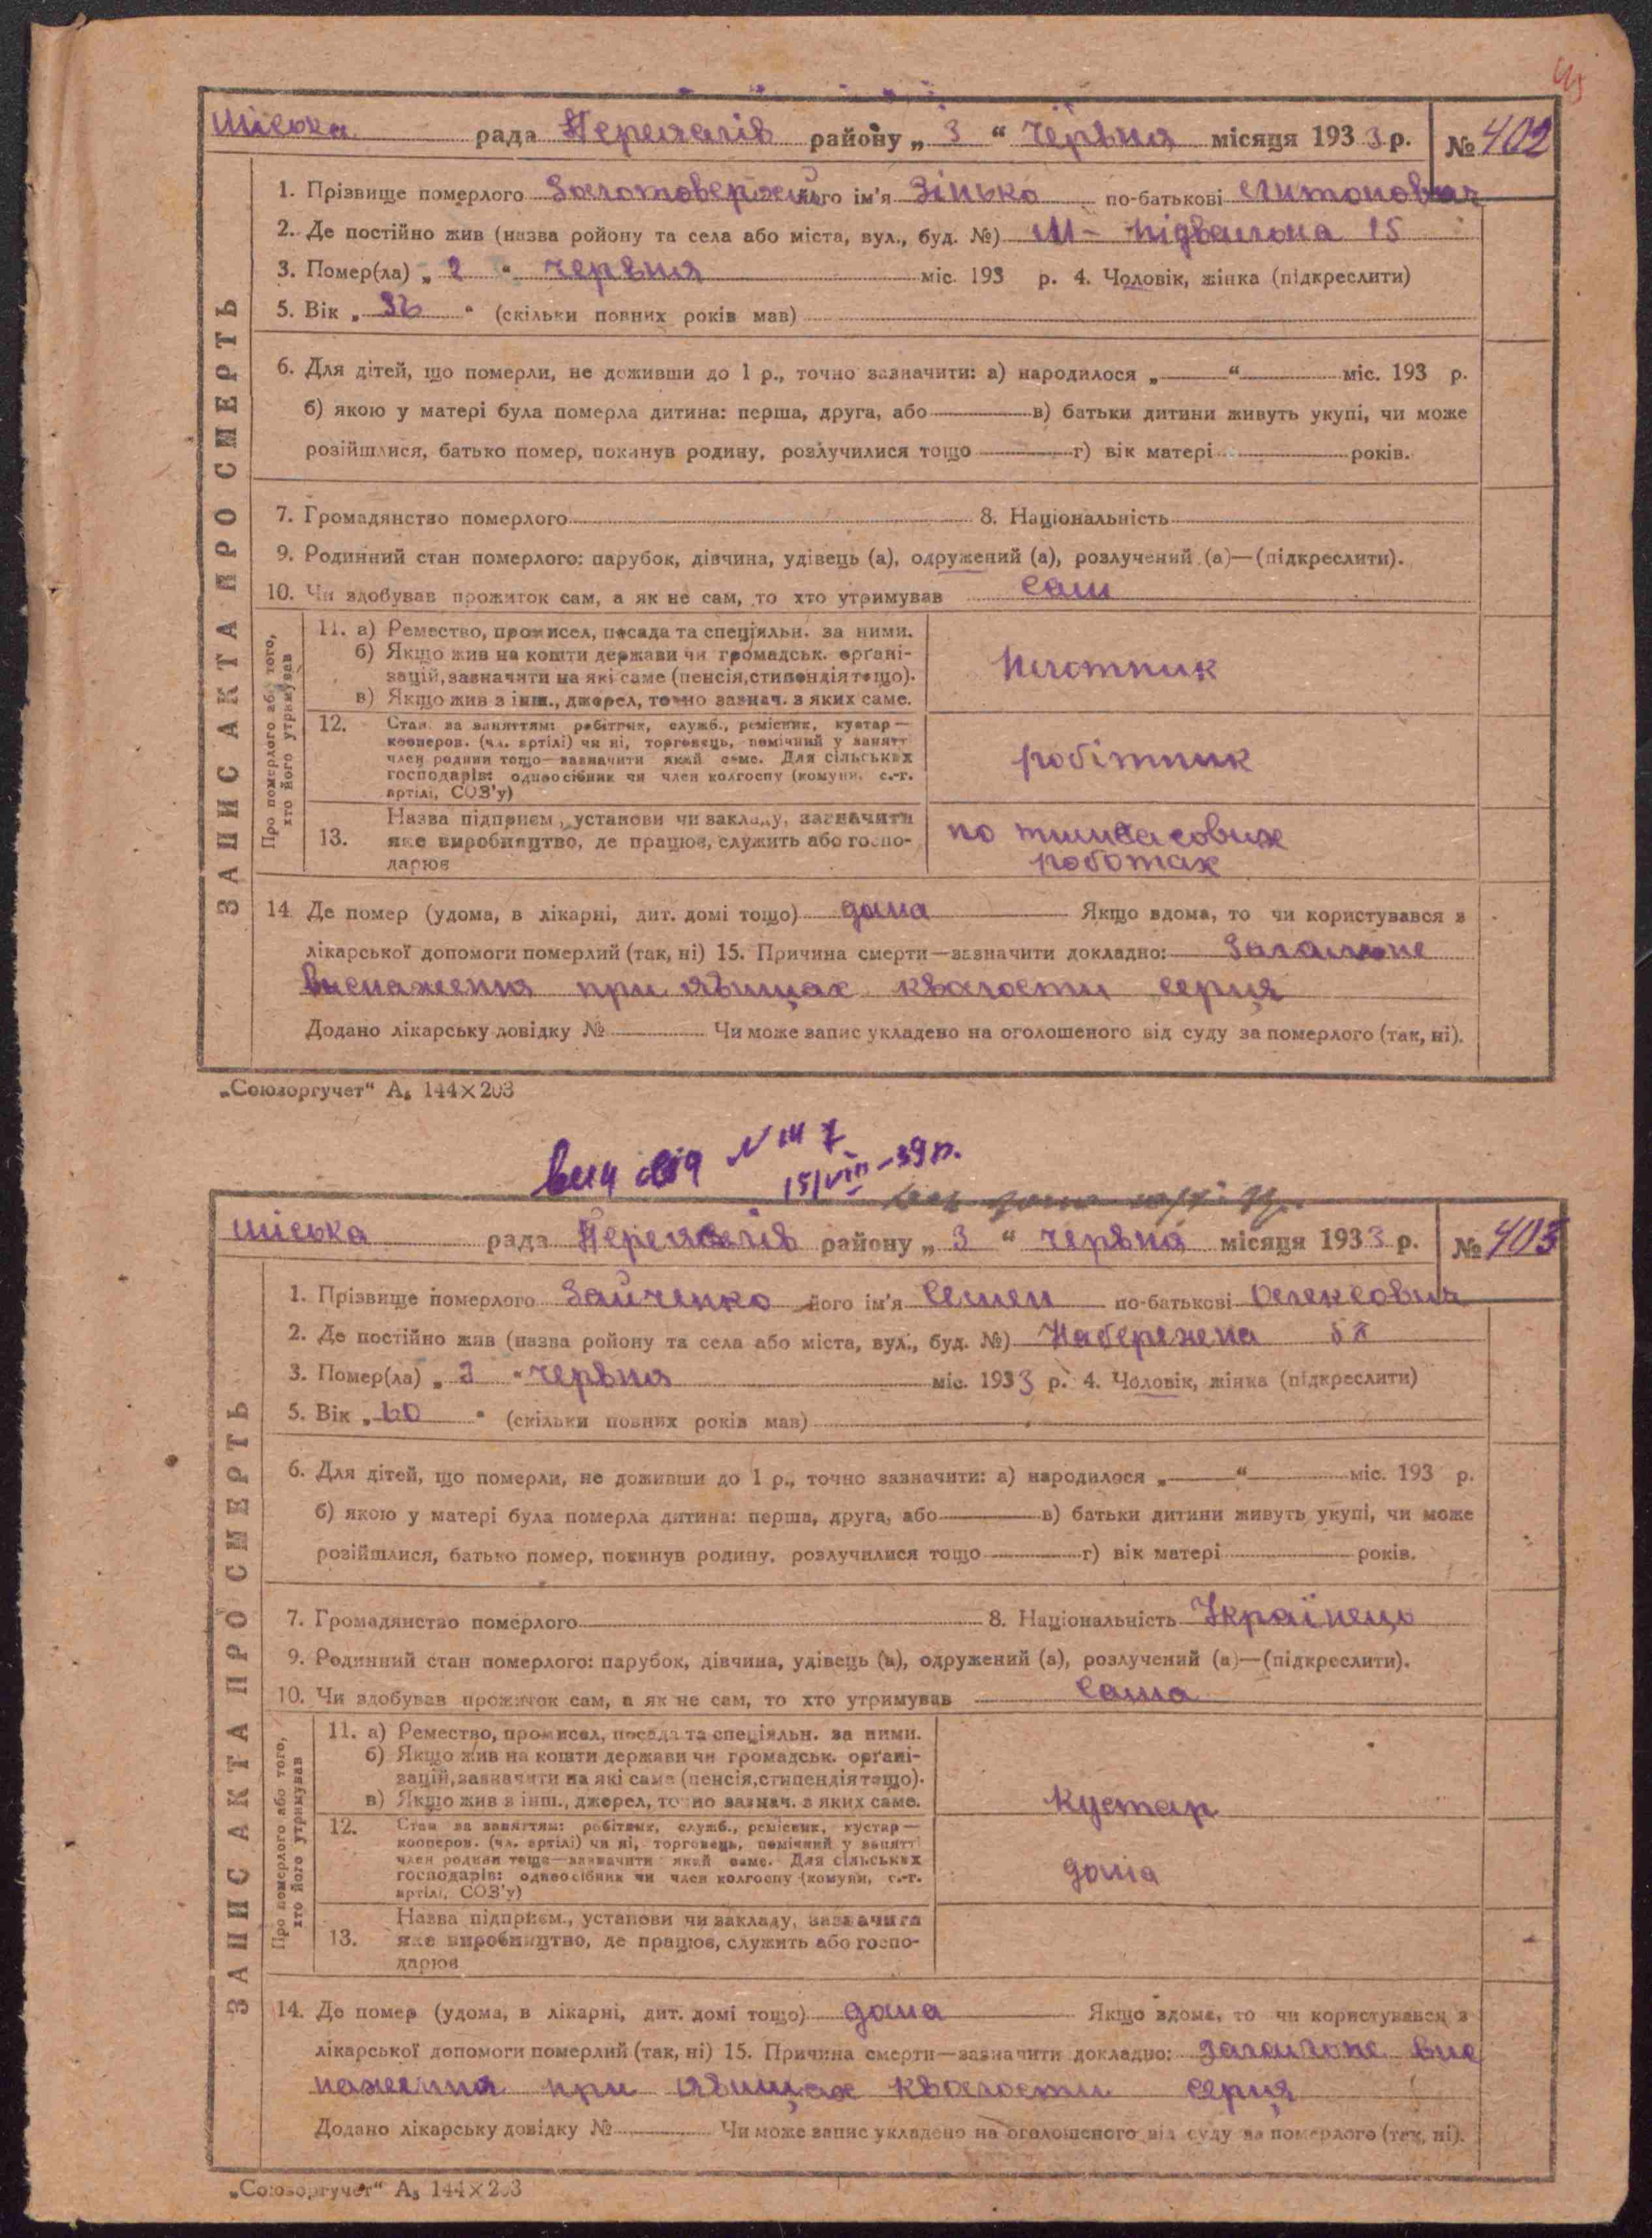 Міська рада Переяслів району „ 3 “ Червня місяця 1933 р. № 402
ЗАПИС АКТА ПРО СМЕРТЬ
1. Прізвище померлого Золотоверхий його ім'я Зінько по-батькові Антонович
2. Де постійно жив (назва ройону та села або міста, вул., буд. №) М- Підвальна 15
3. Помер(ла) „ 2 “ червня міс. 193 р. 4. Чоловік, жінка (підкреслити)
5. Вік „ 36 “ (скільки повних років мав)
6. Для дітей, що померли, не доживши до 1 р., точно зазначити: а) народилося „ “ міс. 193 р.
б) якою у матері була померла дитина: перша, друга, або в) батьки дитини живуть укупі, чи може
розійшлися, батько помер, покинув родину, розлучилися тощо г) вік матері років.
7. Громадянство померлого 8. Національність
9. Родинний стан померлого: парубок, дівчина, удівець (а), одружений (а), розлучений (а)—(підкреслити).
10. Чи здобував прожиток сам, а як не сам, то хто утримував Сам
Про померлого або того, хто його утримував
11. а) Ремество, промисел, посада та спеціяльн. за ними.
б) Якщо жив на кошти держави чи громадськ. органі-
зацій, зазначити на які саме (пенсія, стипендія тощо).
в) Якщо жив з інш., джерел, точно зазнач. з яких саме.
Плотник
12. Стан. за заняттям: робітник, служб., ремісник, кустар—
кооперов. (чл. артілі) чи ні, торговець, помічний у занятт
член родини тощо—зазначити який саме. Для сільських
господарів: одноосібник чи член колгоспу (комуни, с.-г.
артілі, СОЗ'у)
робітник
13. Назва підприєм., установи чи закладу, зазначити
яке виробництво, де працює, служить або госпо-
дарює
по тимчасових
роботах
14 Де помер (удома, в лікарні, дит. домі тощо) дома Якщо вдома, то чи користувався з
лікарської допомоги померлий (так, ні) 15. Причина смерти—зазначити докладно: Загальне
виснаження при явищах кволости серця
Додано лікарську довідку № Чи може запис укладено на оголошеного від суду за померлого (так, ні).
„Союзоргучет“ А₅ 144×203
15/VIII-39 р.
міська рада Переяслів району „ 3 “ червня місяця 1933 р. № 403
ЗАПИС АКТА ПРО СМЕРТЬ
1. Прізвище померлого Зайченко його ім'я Семен по-батькові Олексович
2. Де постійно жив (назва ройону та села або міста, вул., буд. №) Набережена
3. Помер(ла) „ 3 “ червня міс. 1933 р. 4. Чоловік, жінка (підкреслити)
5. Вік „ 60 “ (скільки повних років мав)
6. Для дітей, що померли, не доживши до 1 р., точно зазначити: а) народилося „ “ міс. 193 р.
б) якою у матері була померла дитина: перша, друга, або в) батьки дитини живуть укупі, чи може
розійшлися, батько помер, покинув родину, розлучилися тощо г) вік матері років.
7. Громадянство померлого 8. Національність Українець
9. Родинний стан померлого: парубок, дівчина, удівець (а), одружений (а), розлучений (а)—(підкреслити).
10. Чи здобував прожиток сам, а як не сам, то хто утримував Сама
Про померлого або того, хто його утримував
11. а) Ремество, промисел, посада та спеціяльн. за ними.
б) Якщо жив на кошти держави чи громадськ. органі-
зацій, зазначити на які саме (пенсія, стипендія тощо).
в) Якщо жив з інш., джерел, точно зазнач. з яких саме.
Кустар
12. Стан за заняттям: робітник, служб., ремісник, кустар—
кооперов. (чл. артілі) чи ні, торговець, помічний у занятті
член родини тощо—зазначити який саме. Для сільських
господарів: одноосібник чи член колгоспу (комуни, с.-г.
артілі, СОЗ'у)
дома
13. Назва підприєм., установи чи закладу, зазначити
яке виробництво, де працює, служить або госпо-
дарює
14. Де помер (удома, в лікарні, дит. домі тощо) дома Якщо вдома, то чи користувався з
лікарської допомоги померлий (так, ні) 15. Причина смерти—зазначити докладно: загальне вис
наження при явищах кволости серця
Додано лікарську довідку № Чи може запис укладено на оголошеного від суду за померлого (так, ні).
„Союзоргучет“ А₅ 144×203